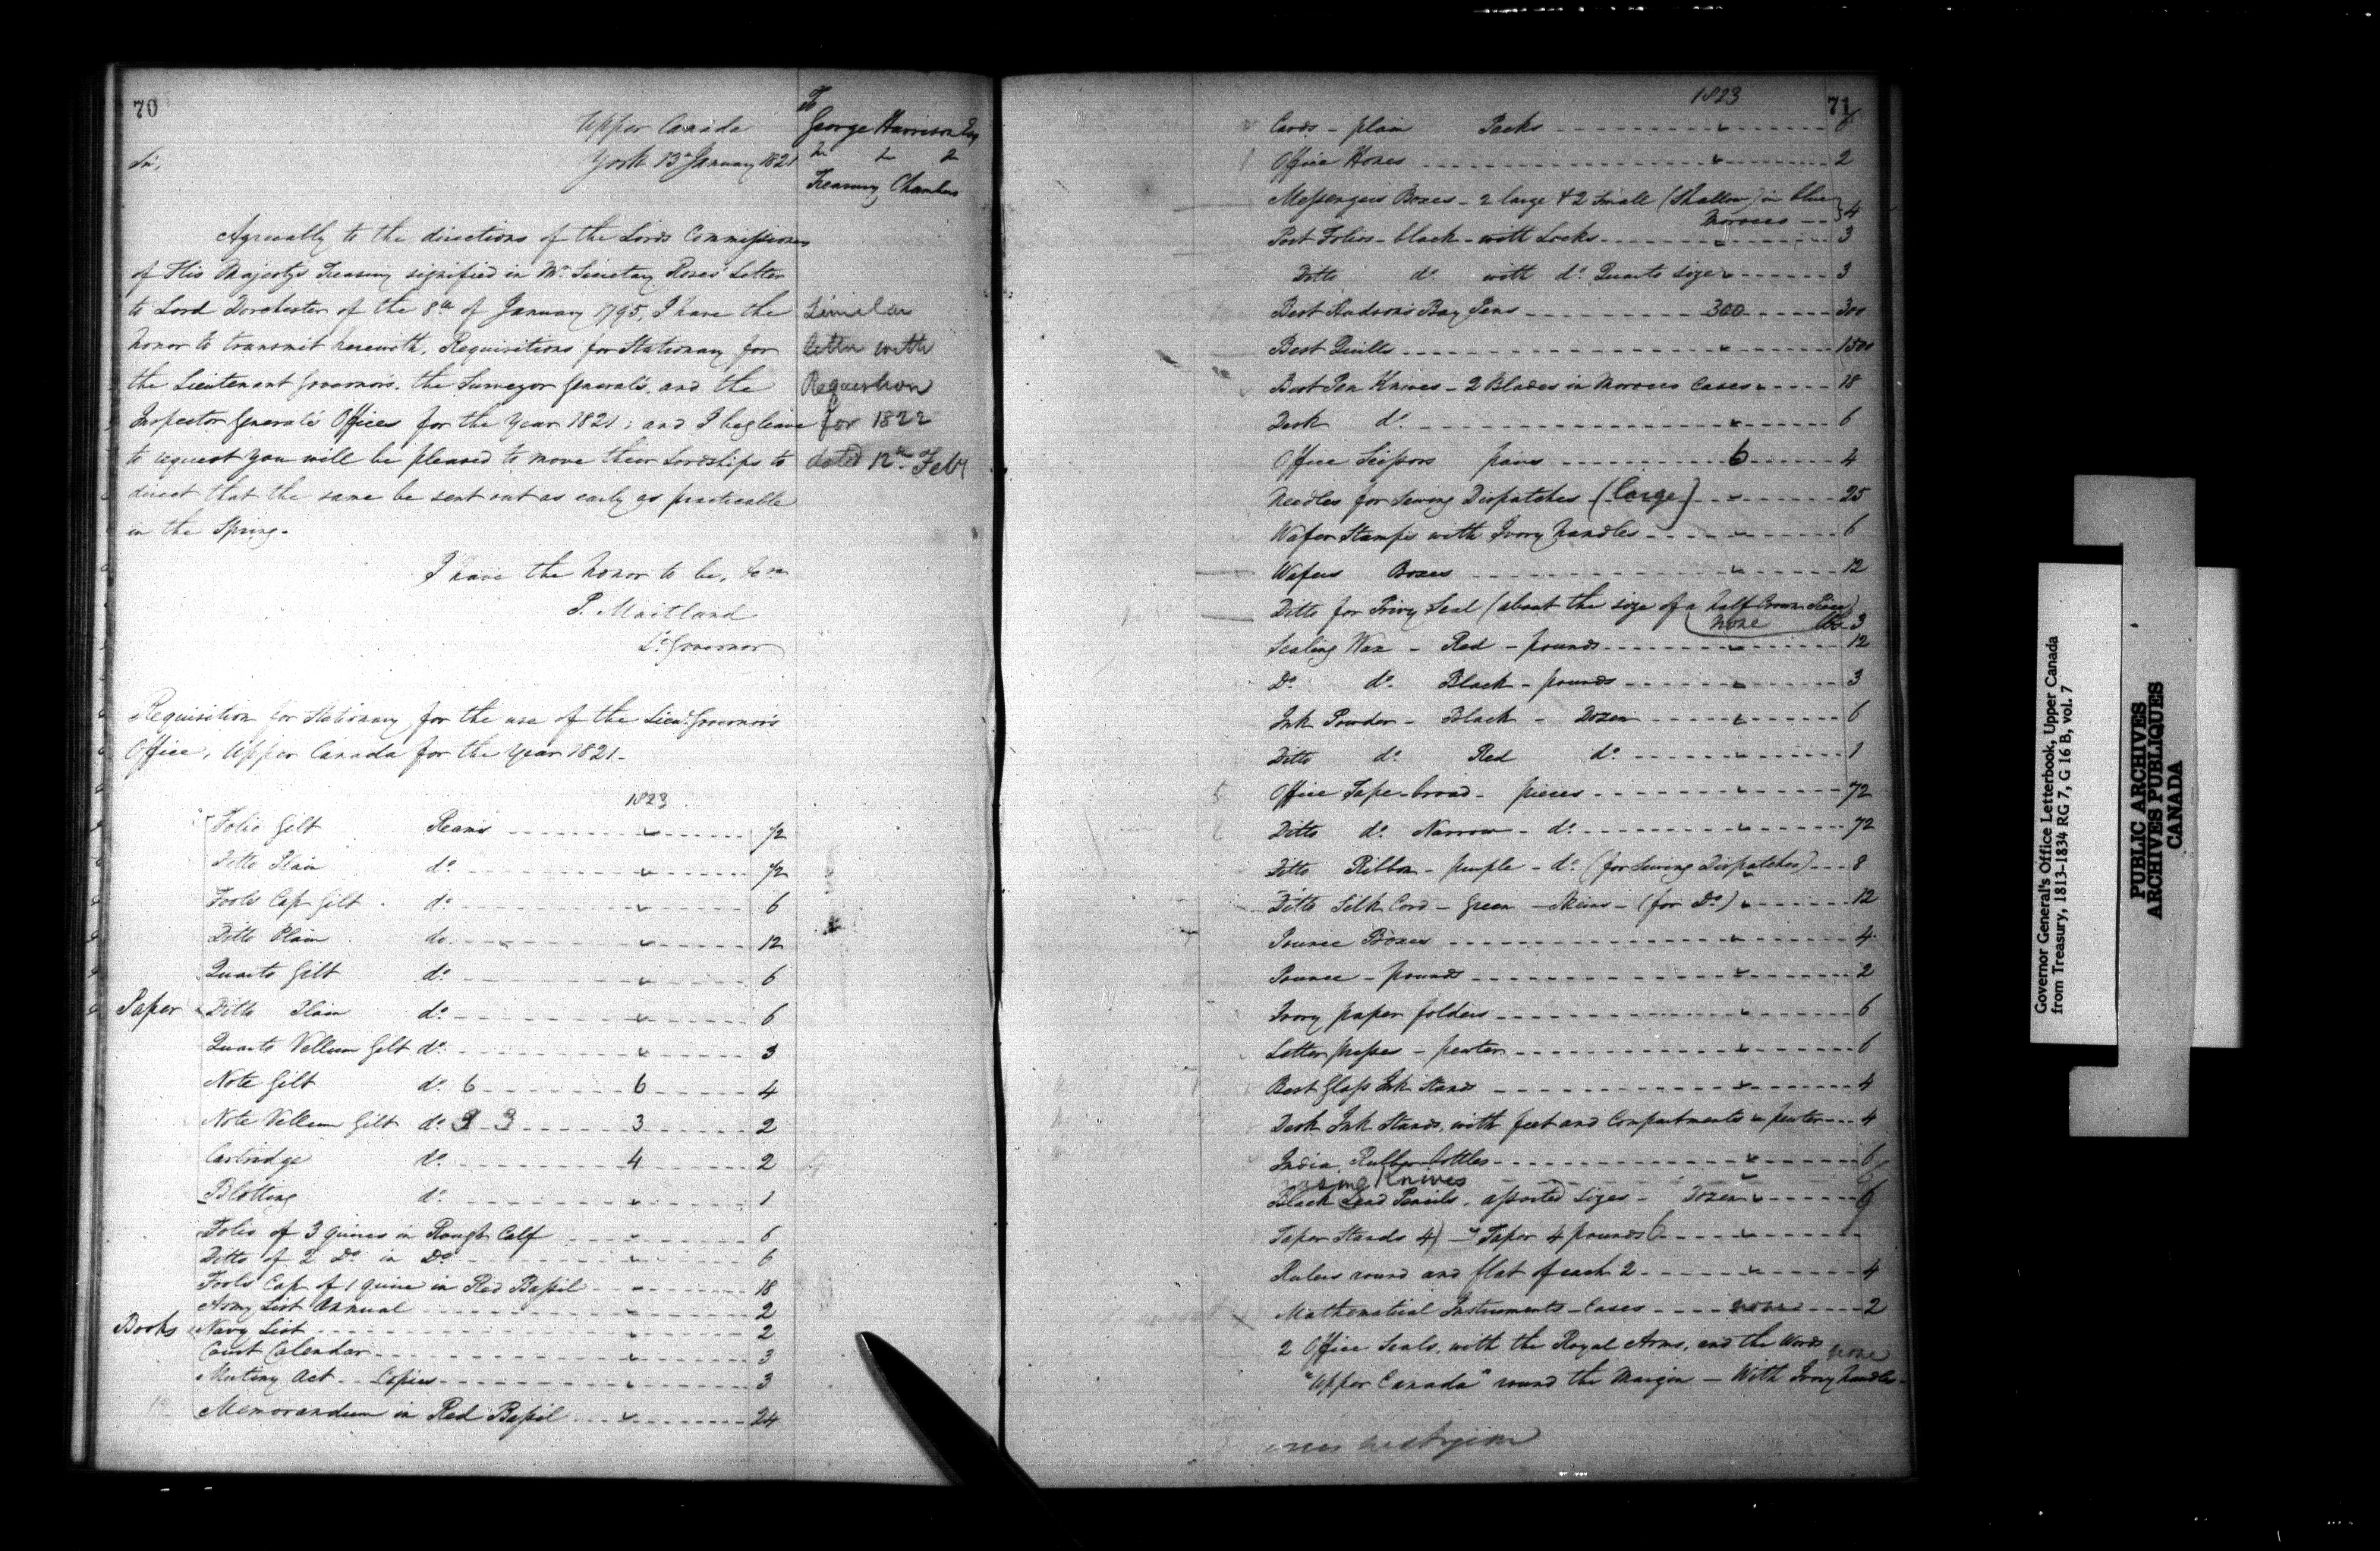 70
Upper Canada
York 13th January 1821
Sir,
To
George Harrison Esq
&c &c &c
Treasury Chambers
Agreeably to the directions of the Lords Commissioners
of His Majestys Treasury signified in Mr. Secretary Roses' Letter
to Lord Dorchester of the 8th of January 1795, I have the
honor to transmit herewith, Requisitions for Stationary for
the Lieutenant Governor's, the Surveyor General's, and the
Inspector General's Offices for the Year 1821; and I beg leave
to request you will be pleased to move their Lordships to
direct that the same be sent out as early as practicable
in the Spring.
Similar
letter with
Requisition
for 1822
dated 12th Feby
I have the honor to be, &ca
P. Maitland
Lt. Governor
Requisition for Stationary for the use of the Lieut. Governor's
Office, Upper Canada for the Year 1821.
1823
Paper
Folio Gilt Reams 1/2
Ditto Plain do. 1/2
Fools Cap Gilt do. 6
Ditto Plain do. 12
Quarto Gilt do. 6
Ditto Plain do. 6
Quarto Vellum Gilt do. 3
Note Gilt do. 6 6 4
Note Vellum Gilt do. 3 3 3 2
Cartridge do. 4 2
Blotting do. 1
Books
Folio of 3 quires in Rough Calf 6
Ditto of 2 Do. in Do. 6
Fools Cap of 1 quire in Red Bassil 18
Army List Annual 2
Navy List 2
Court Calendar 3
Mutiny Act Copies 3
Memorandum in Red Bassil 24
1823
71
Cards - plain Packs 6
Office Hones 2
Messengers Boxes - 2 large & 2 Small (Shallow) in blue
Morocco 4
Port Folios - black - with Locks 3
Ditto do. with do. Quarto size 3
Best Hudson's Bay Pens 300 300
Best Quills 1500
Best Pen Knives - 2 Blades in Morocco Cases 18
Desk do. 6
Office Scissors pairs 6 4
Needles for Sewing Dispatches (large) 25
Wafer Stamps with Ivory handles 6
Wafers Boxes 12
Ditto for Privy Seal (about the size of a half Crown Piece)
none lbs 3
Sealing Wax - Red - pounds 12
Do. do. Black - pounds 3
Ink Powder - Black - Dozen 6
Ditto do. Red do. 1
Office Tape - broad - pieces 72
Ditto do. Narrow - do. 72
Ditto Ribbon - purple - do. (for Sewing Dispatches) 8
Ditto Silk Cord - Green - Skeins - (for Do.) 12
Pounce Boxes 4
Pounce - pounds 2
Ivory paper folders 6
Letter presses - pewter 6
Best Glass Ink Stands 4
Desk Ink Stands, with feet and Compartments in pewter 4
India Rubber bottles 6
Erasing Knives 6
Black Lead Pencils, assorted sizes - Dozen 6
Taper Stands 4) Taper 4 pounds 6
Rulers round and flat of each 2 4
Mathematical Instruments - Cases none 2
2 Office Seals, with the Royal Arms, and the Words
none
"Upper Canada" round the Margin - With Ivory handles -
Governor General's Office Letterbook, Upper Canada
from Treasury, 1813-1834 RG 7, G 16 B, vol. 7
PUBLIC ARCHIVES
ARCHIVES PUBLIQUES
CANADA